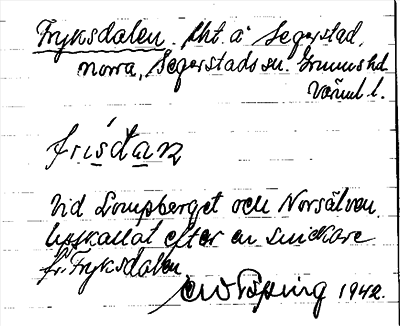 Fryksdalen. lht. å Segerstad,
norra, Segerstads sn. Grums hd.
Värml. l.
frisdan
Vid Lompberget och Norsälven.
Uppkallat efter en snickare
fr. Fryksdalen
1942.